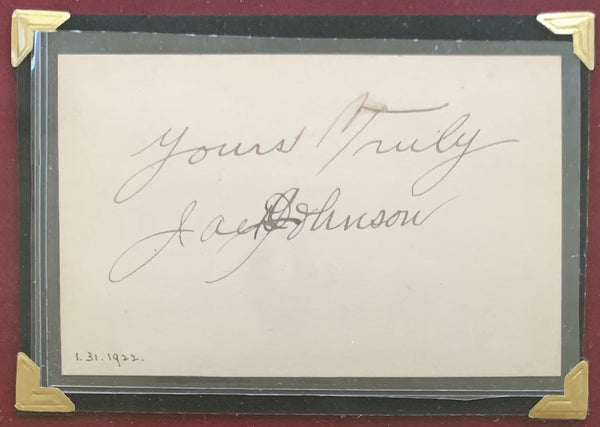 Yours Truly
Jack Johnson
1.31.1922.